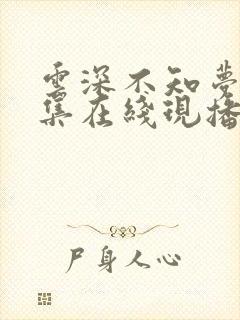 雲深不知夢
集在綫現播
尸身人心